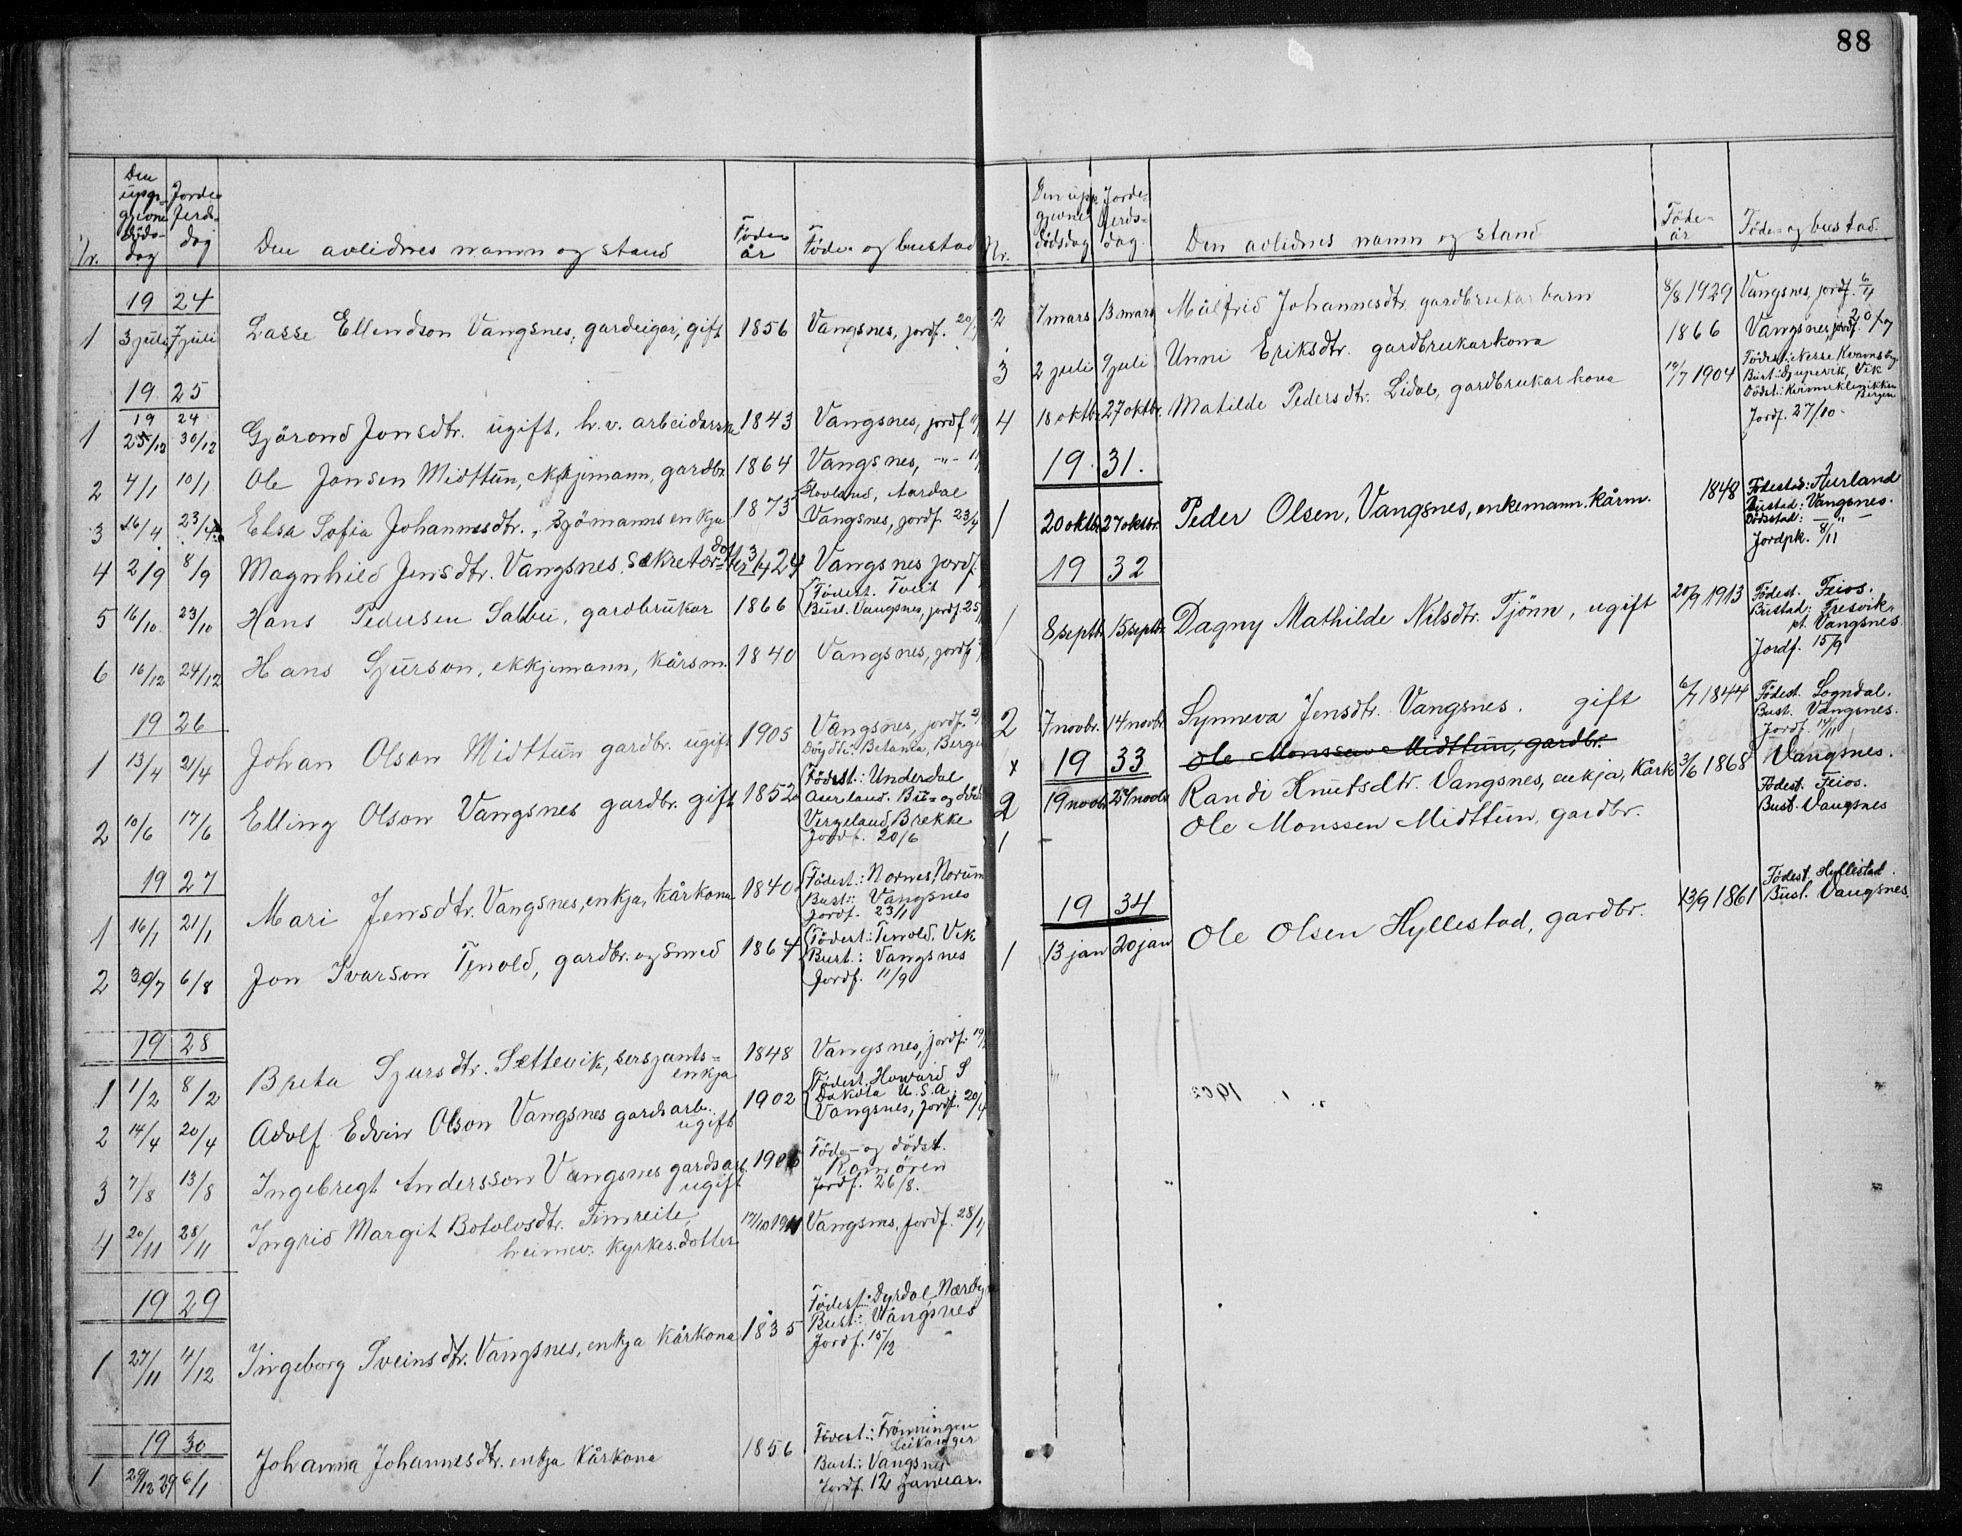 88
Nr. Den upgjevne døds-dag Jorde-ferds-dag Den avlidnes namn og stand Føde-år Føde- og bustad
19 24
1 3 juli 7 juli Lasse Ellendson Vangsnes, gardeigar, gift 1856 Vangsnes, jordf. 20/
19 25
19 24
1 25/12 30/12 Gjørond Jonsdtr. ugift, h.v. arbeidarska 1843 Vangsnes, jordf
2 4/1 10/1 Ole Jonsen Midttun, ekkjemann, gardbr. 1864 Vangsnes, -"-
3 16/4 23/4 Elsa Sofia Johannesdtr., sjømanns enkja 1873 Hovland, Aardal
Vangsnes, jordf. 23/4
4 2/9 8/9 Magnhild Jensdtr. Vangsnes, sekretær dotter 3/4 24 Vangsnes jordf.
5 16/10 23/10 Hans Pedersen Sabbu, gardbrukar 1866 Fødest. Tveit
Bust. Vangsnes, jordf. 25
6 16/12 24/12 Hans Sjurson, ekkjemann, kårsm. 1840 Vangsnes, jordf.
19 26
1 13/4 21/4 Johan Olson Midttun gardbr. ugift 1905 Vangsnes, jordf.
Døydde: Betania, Bergen
2 10/6 17/6 Elling Olson Vangsnes gardbr. gift 1852 Fødest.: Underdal
Aurland. Bu- og døds
Vergeland Brekke
Jordf. 20/6
19 27
1 16/1 21/1 Mari Jensdtr. Vangsnes, enkja, kårkona 1840 Fødest.: Nornes, Norum
Bust.: Vangsnes
Jordf. 23/1
2 30/7 6/8 Jon Ivarson Tenold, gardbr. og smed 1864 Fødest: Tenold. Vik
Bust.: Vangsnes
Jordf. 11/9
19 28
1 1/2 8/2 Brita Sjursdtr. Sættevik, sersjants-
enkja 1848 Vangsnes, jordf. 19/
2 14/4 20/4 Adolf Edvin Olson Vangsnes gardsarb.
ugift 1902 Fødest. Howard S
Dakota U.S.A.
Vangsnes, Jordf. 20/4
3 7/8 13/8 Ingebregt Andersson Vangsnes gardsarb
ugift Føde- og dødst.
Ramøren
Jordf. 26/8.
4 20/11 28/11 Ingrid Margit Botolvsdtr. Fimreite,
heimev. kyrkes. dotter 17/10 1911 Vangsnes, Jordf. 28/11
19 29
1 27/11 4/12 Ingeborg Sveinsdtr. Vangsnes, enkja kårkona 1835 Fødest: Dyrdal Nærøy
Bust: Vangsnes
Jordf. 15/12
19 30
1 29/12 29 6/1 Johanna Johannesdtr. enkja kårkona 1856 Fødest.: Frønningen
Leikanger
Bust: Vangsnes
Jordf. 12 Januar.
Nr. Den uppgjevne dødsdag Jorde-ferds-dag. Den avlidnes namn og stand Føde-år Føde- og bustad.
2 7 mars 13 mars Målfrid Johannesdtr. gardbrukar barn 8/8 1929 Vangsnes, jordf. 6/4
3 2 juli 9 juli Unni Eriksdtr. gardbrukarkona 1866 Vangsnes, jordf. 20/7
4 18 oktbr. 27 oktbr. Matilde Pedersdtr. Lidal, gardbrukar kona 19/7 1904 Fødest: Nesse Kvamsøy
Bust: Djupevik, Vik
Dødst.: Kvinneklinikken
Bergen
Jordf. 27/10 -
19 31.
1 20 oktbr 27 oktbr. Peder Olsen, Vangsnes, enkemann. kårm. 1848 Fødestad: Aurland
Bustad: Vangsnes.
Dødsstad: — " —
Jordpk. 8/11
19 32
1 8 septb. 15 septbr. Dagny Mathilde Nilsdtr. Tjønn, ugift 20/9 1913 Fødest. Feios.
Bustad: Fresvik,
pt. Vangsnes.
Jordf. 15/9
2 7 novbr. 14 novbr. Synneva Jensdtr. Vangsnes. gift 6/7 1844 Fødest. Sogndal.
Bust. Vangsnes.
Jordf. 14/11
x 19 33 Ole Monssen Midttun, gardbr.
2 19 novbr 25 novbr Randi Knutsdtr. Vangsnes, enkja, kårk 3/6 1868 Vangsnes.
1 - Ole Monssen Midttun, gardbr. Fødest. Feios.
Bust. Vangsnes
19 34
1 13 jan 20 jan Ole Olsen Hyllestad, gardbr. 13/9 1861 Fødest. Hyllestad.
Bust. Vangsnes.